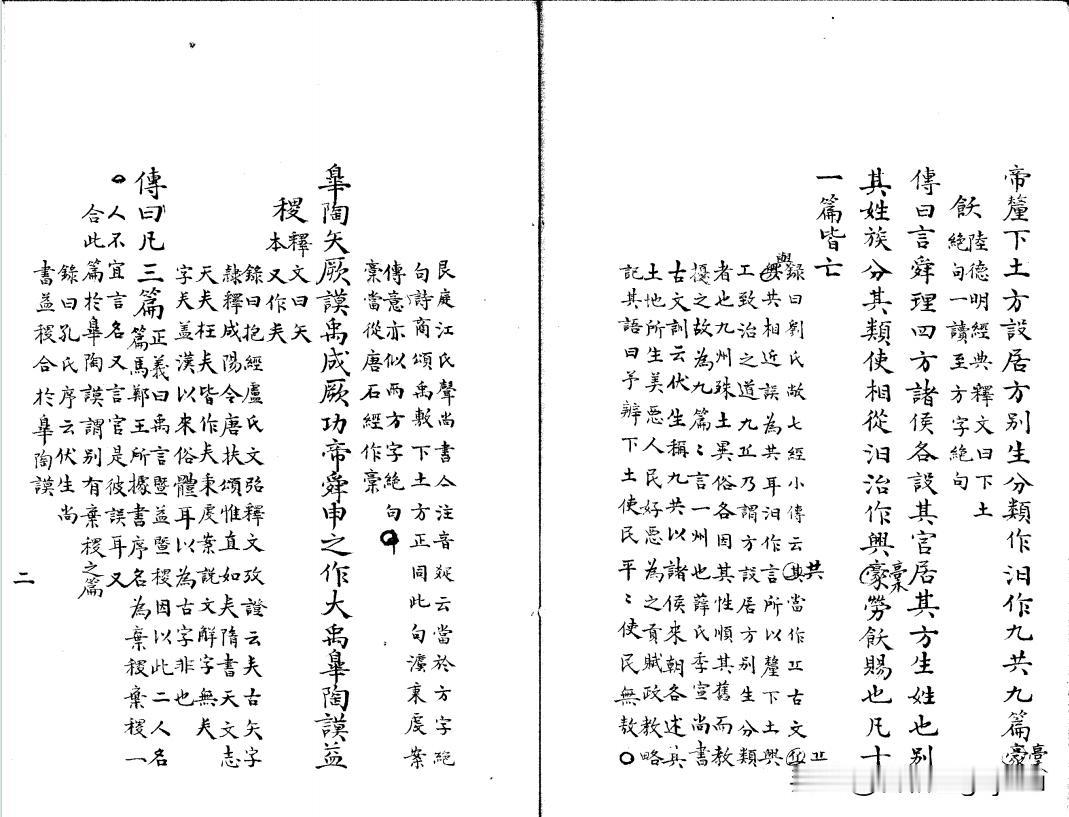 帝釐下土方設居方別生分類作汨作九共九篇槀
飫陸德明經典釋文曰下土
絶句一讀至方字絶句
傳曰言舜理四方諸侯各設其官居其方生姓也別
其姓族分其類使相從汨治作興槀勞飫賜也凡十
一篇皆亡
錄曰劉氏敞七經小傳云共當作丠古文丠
與共相近誤為共耳汨作言所以釐下土與
工致治之道九丠乃謂方設居方別生分類
者也九州殊土異俗各因其性順其舊而教
擾之故為九篇〻言一州也薛氏季宣尚書
古文訓云伏生稱九共以諸侯來朝各述其
土地所生美惡人民好惡為之貢賦政教略
記其語曰予辨下土使民平〻使民無敖
艮庭江氏聲尚書今注音疑云當於方字絶
句詩商頌禹敷下土方正同此句瀛東虔案
傳意亦似兩方字絶句
槀當從唐石經作槀
皐陶矢厥謨禹成厥功帝舜申之作大禹皐陶謨益
稷釋文曰矢
本又作夭
錄曰抱經盧氏文弨釋文攷證云夭古矢字
隸釋成陽令唐扶頌惟直如夭隋書天文志
天夭枉夭皆作夭東虔案說文解字無夭
字夭蓋漢以來俗體耳以為古字非也
傳曰凡三篇正義曰禹言暨益暨稷因以此二人名
篇馬鄭王所據書序名為棄稷棄稷一
人不宜言名又言官是彼誤耳又
合此篇於皐陶謨謂別有棄稷之篇
錄曰孔氏序云伏生尚
書益稷合於皐陶謨
二